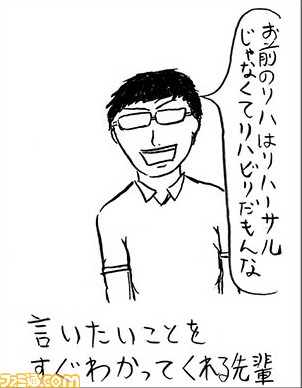 お前のリハはリハーサル
じゃなくてリハビリだもんな
言いたいことを
すぐわかってくれる先輩
ファミ通.com